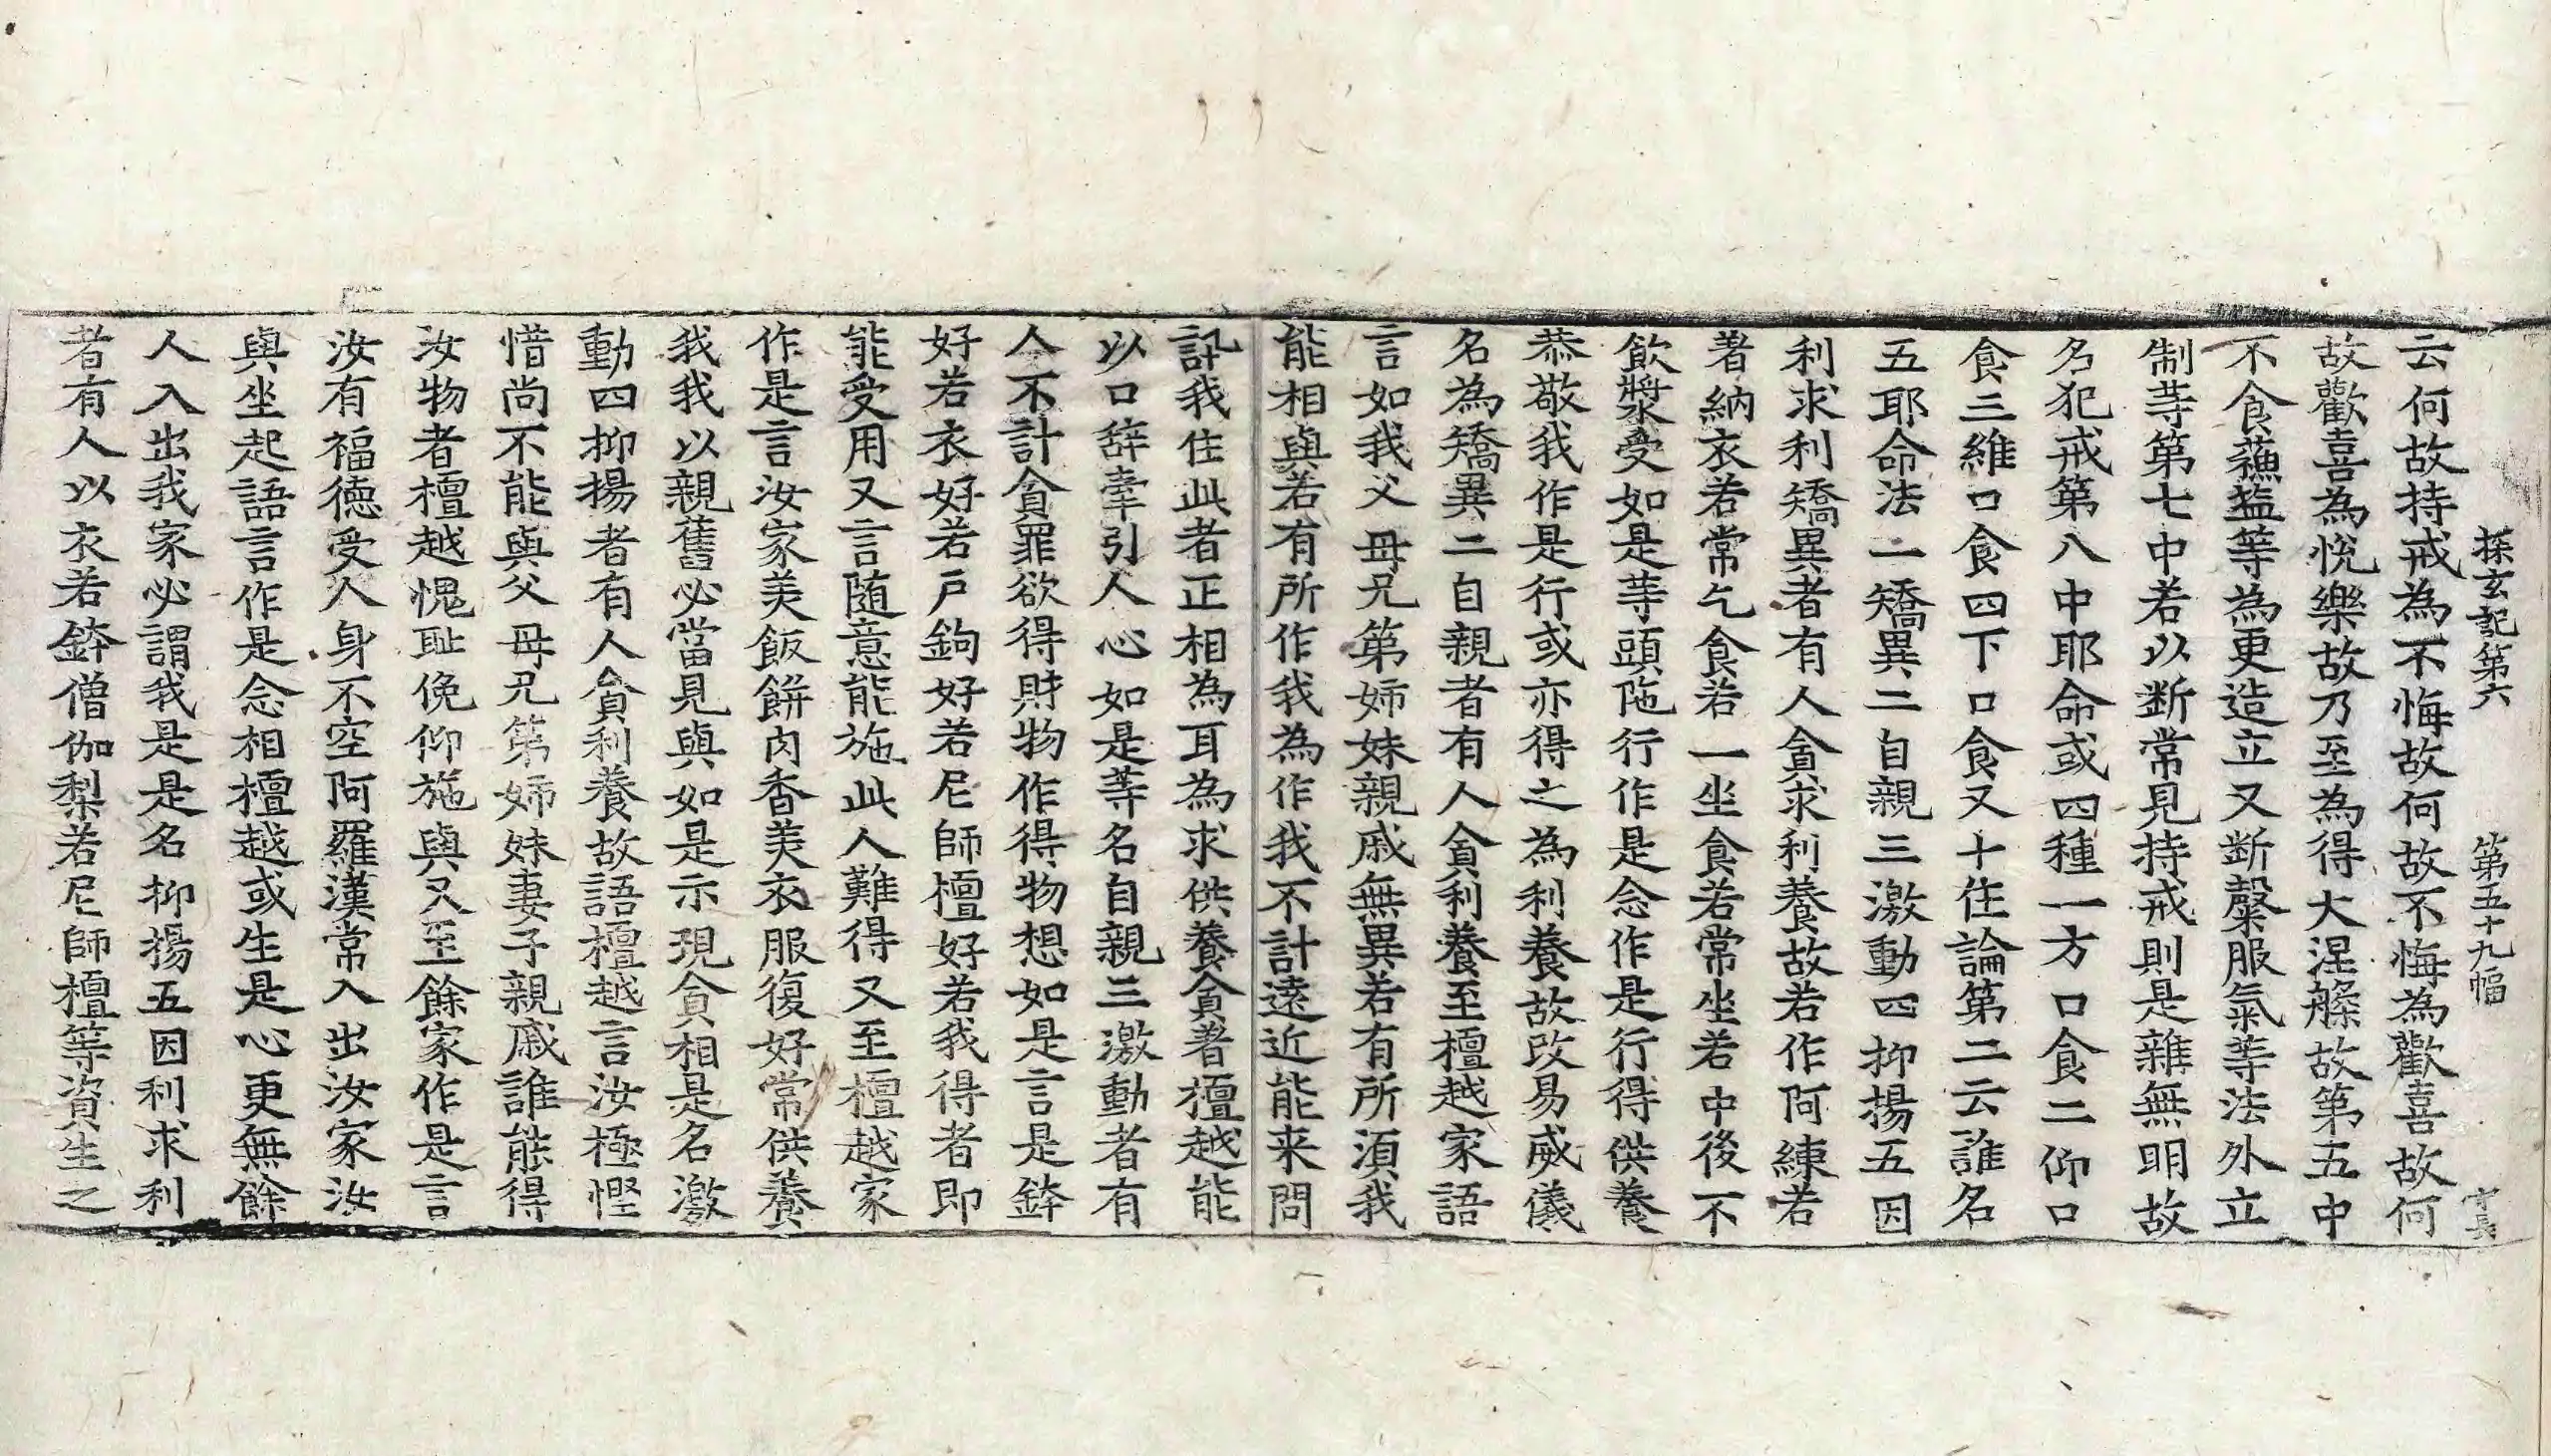 探玄記第六 第五十九幅 宁長
云何故持戒為不悔故何故不悔為歡喜故何
故歡喜為悅樂故乃至為得大涅槃故第五中
不食蘓盐等為更造立又断糳服氣等法外立
制等第七中若以断常見持戒則是雜無明故
名犯戒第八中耶命或四種一方口食二仰口
食三維口食四下口食又十住論第二云誰名
五耶命法一矯異二自親三激動四抑揚五因
利求利矯異者有人貪求利養故若作阿練若
著納衣若常乞食若一坐食若常坐若中後不
飲漿受如是等頭陁行作是念作是行得供養
恭敬我作是行或亦得之為利養故改易威儀
名為矯異二自親者有人貪利養至檀越家語
言如我父母兄第姉妹親戚無異若有所湏我
能相與若有所作我為作我不計遠近能来問
訊我住此者正相為耳為求供養貪著檀越能
以口辞牽引人心如是等名自親三激動者有
人不計貪罪欲得財物作得物想如是言是鉢
好若衣好好若戶鉤好若尼師檀好若我得者即
能受用又言随意能施此人難得又至檀越家
作是言汝家美飯餅肉香美衣服復好常供養
我我以親舊必當見與如是示現貪相是名激
動四抑揚者有人貪利養故語檀越言汝極慳
惜尚不能與父母兄第姉妹妻子親戚誰能得
汝物者檀越愧耻俛仰施與又至餘家作是言
汝有福德受人身不空阿羅漢常入出汝家汝
與坐起語言作是念相檀越或生是心更無餘
人入出我家必謂我是是名抑揚五因利求利
者有人以衣若鉢僧伽梨若尼師檀等資生之